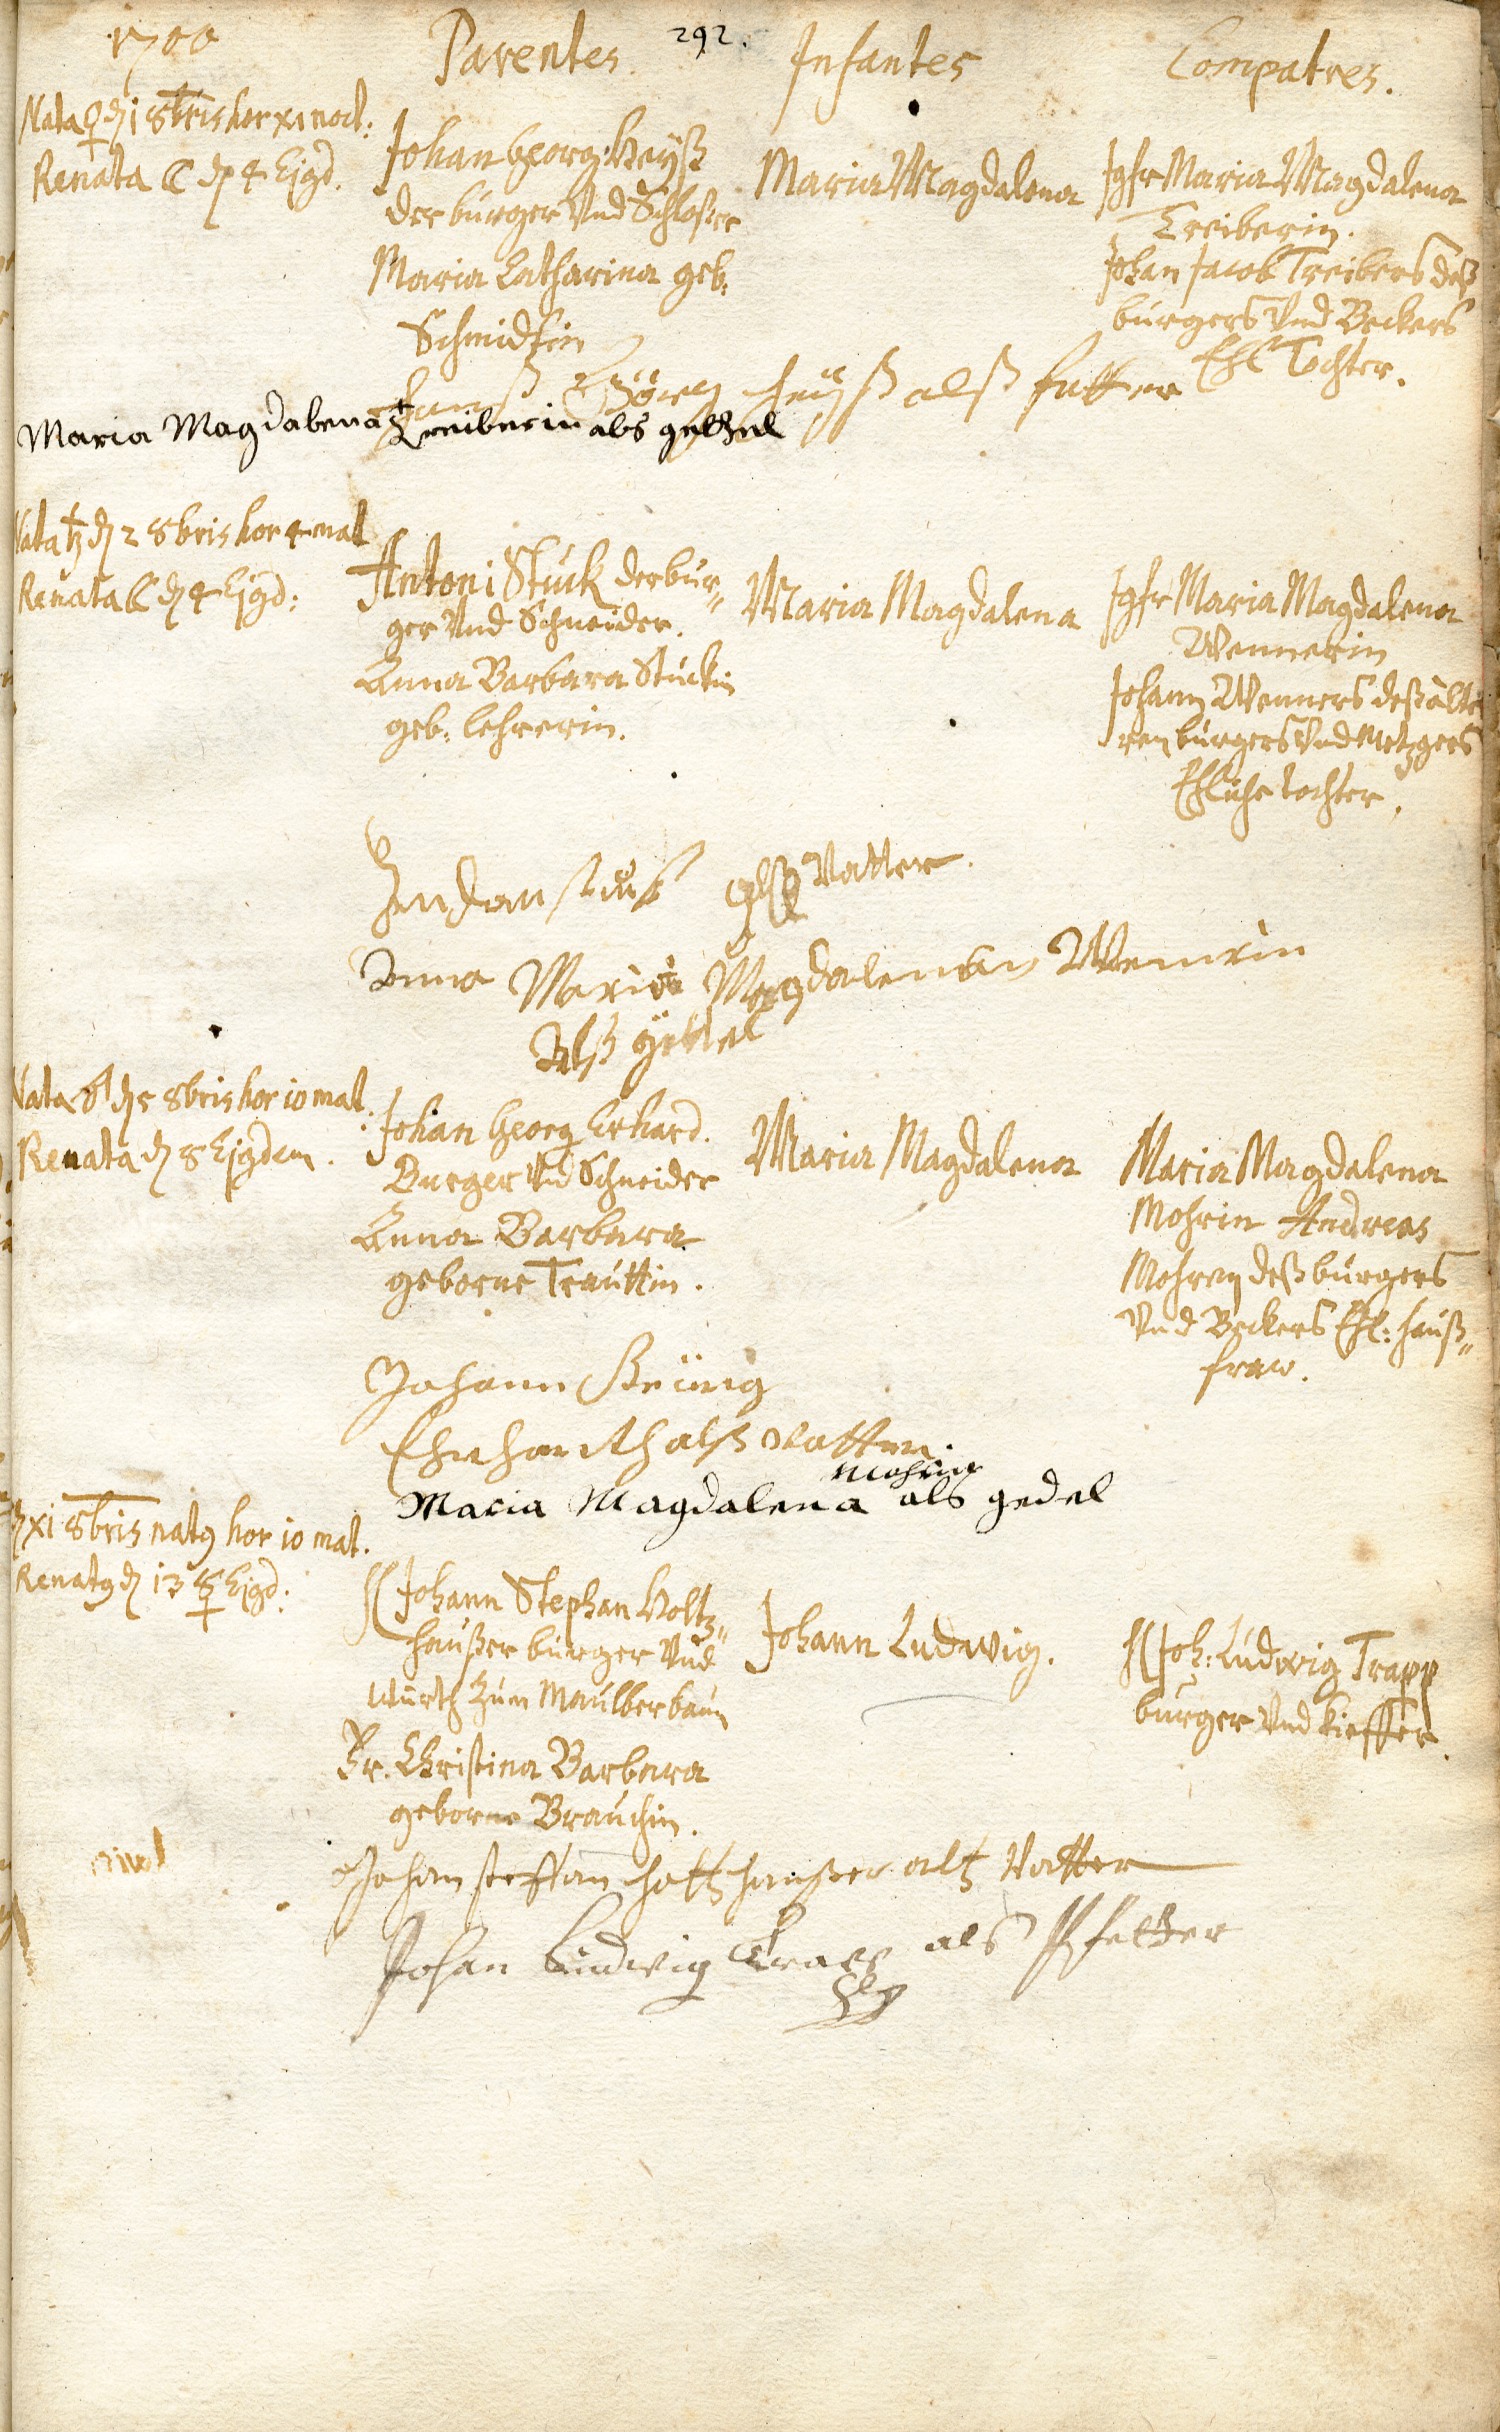 1700
Parentes
292.
Infantes
Compatres.
Nata ♀ dẏ 1 8bris hor xi noct:
Renata ☾ dẏ 4 Ejgd.
Johan Georg Heÿß
der burger Vnd Schloßer
Maria Catharina geb.
Schmidtin
Maria Magdalena
Jgfr Maria Magdalena
Treiberin.
Johan Jacob Treibers deß
burgers Vnd Beckers
Ehl Tochter.
Hanß Görg heÿß alß fatter
Maria Magdalena Treiberin als gettel
Nata ♄ dẏ 2 8bris hor 4 mat
Renata ☾ dẏ 4 Ejgd:
Antoni Stuck der bur„
ger Vnd Schneider.
Anna Barbara Stuckin
geb. Lehrerin.
Maria Magdalena
Jgfr Maria Magdalena
Wennerin
Johann Wenners deß älte
ren burgers Vnd Metzgers
Ehliche tochter.
stuck alß Vatter.
Anna Maria Magdalenan Wenrin
Alß gettel
Nata ♂ dẏ 5 8bris hor 10 mat.
Renata dẏ 8 Ejgdem.
Johan Georg Erhard.
Burger Vnd Schneider
Anna Barbara
geborne Trauttin.
Maria Magdalena
Maria Magdalena
Mohrin Andreas
Mohren deß burgers
Vnd Beckers Ehl: hauß„
fraw.
Johann Geürig
Ehrhardth alß Vatter.
Mohrin
Maria Magdalena als gedel
dẏ xi 8bris nat9 hor 10 mat.
Renat9 dẏ 13 ☿ Ejgd:
H Johann Stephan Holtz„
haußer burger Vnd
Würth zum Maulberbaum
Fr. Christina Barbara
geborne Brauchin.
Johann Ludwig.
H Joh: Ludwig Trapp
burger Vnd kieffer.
Johan steffan holtzhaußer alß Vatter
Johan Ludwig Trapp als Pfetter